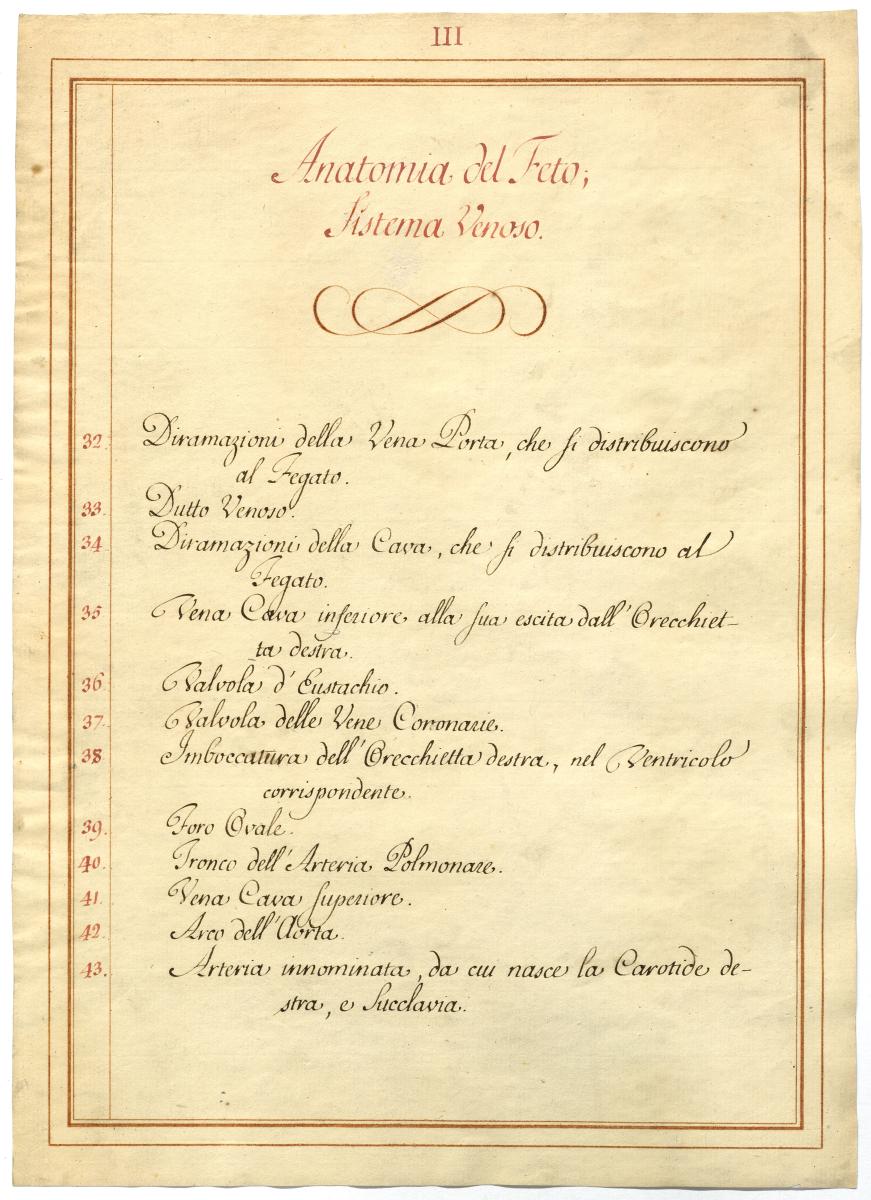 III
Anatomia del Feto;
Sistema Venoso.
32. Diramazioni della Vena Porta, che si distribuiscono
al Fegato.
33. Dutto Venoso.
34 Diramazioni della Cava, che si distribuiscono al
Fegato.
35 Vena Cava inferiore alla sua escita dall'Orecchiet-
ta destra.
36. Valvola d'Eustachio.
37. Valvola delle Vene Coronarie.
38 Imboccatura dell'Orecchietta destra, nel Ventricolo
corrispondente.
39. Foro Ovale.
40. Tronco dell'Arteria Polmonare.
41. Vena Cava superiore.
42. Arco dell'Aorta.
43. Arteria innominata, da cui nasce la Carotide de-
stra, e Succlavia.